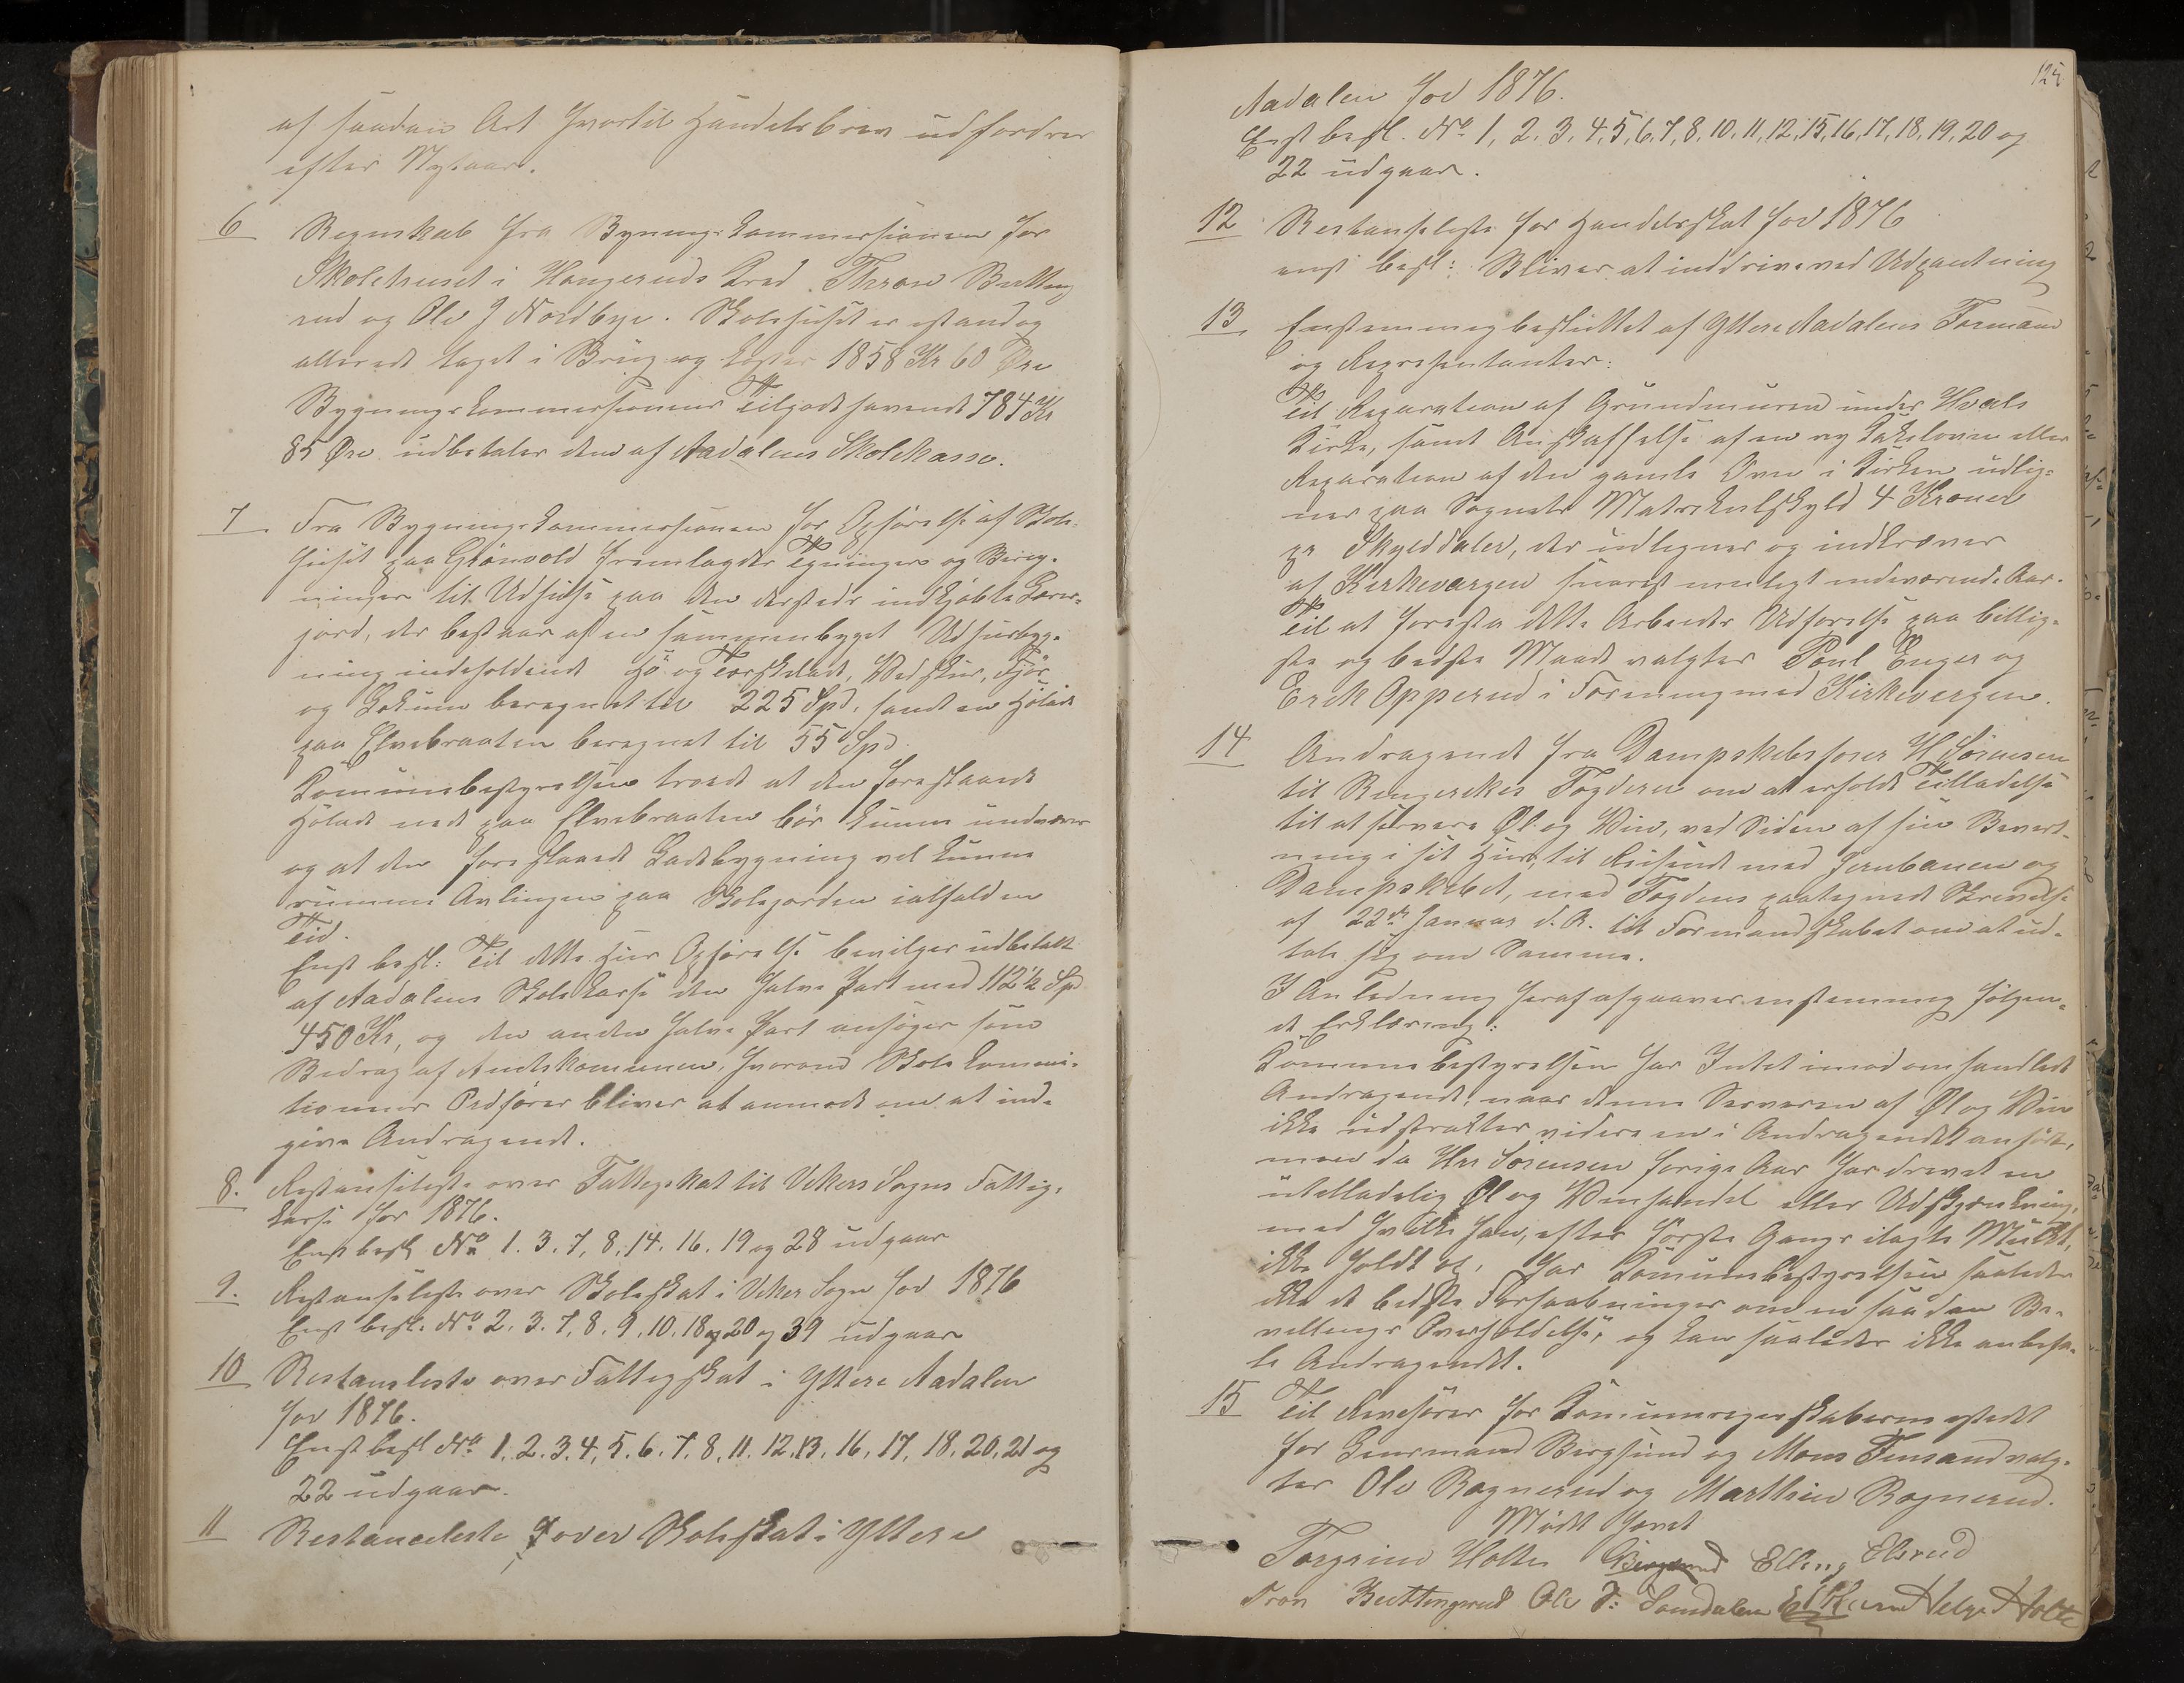 af saadan Art hvortil Handelsbrev udfordres
efter Nytaar.
6 Regnskab fra Bygningskommissionen for
Skolehuset i Hougeruds Kred. Thron Butting
rud og Ole J Nordbye. Skolehuset er istand og
allerede taget i Brug og koster 1858 Kr 60 Øre
Bygningskommissionens Tilgodehavende 784 Kr
85 Øre udbetales dem af Aadalens Skolekasse.
7 Fra Bygningskommissionen for Opførelse af Skole-
huset paa Grönvold fremlagdes Tegninger og Bereg-
ninger til Udhuse paa den dersteds indkjöbte Lærer-
jord, der bestaar af en sammenbygget Udhusbyg-
ning indeholdende Hö og Torskelade, Vedskur, Fjös
og Lokum beregnet til 225 Spd, samt en Hölade
paa Elvebraaten beregnet til 55 Spd.
Kommunebestyrelsen troede at den foreslaaede
Hölade nede paa Elvebraaten bör kunne undværes
og at den foreslaaede Ladebygning vel kunne
rumme Avlingen paa Skolejorden ialfald en
Tid.
Enst besl: Til dette Huus Opførelse bevilges udbetalt
af Aadalens Skolekasse den halve Part med 112½ Spd
450 Kr, og den anden halve Part ansöges som
Bidrag af Amtskommunen, hvorom Skolekommis-
tionens Ordförer bliver at anmode om at ind-
give Andragende.
8. Restanseliste over Fattigskat til Vikers Sogns Fattig-
kasse for 1876.
Enst besl No 1. 3. 7, 8, 14. 16. 19 og 28 udgaar
9. Restanseliste over Skoleskat i Viker Sogn for 1876
Enst besl. No 2. 3. 7, 8. 9. 10. 18 og 20 og 39 udgaar
10 Restanseliste over Fattigskat i Yttere Aadalen
for 1876.
Enst besl No 1. 2. 3. 4, 5. 6. 7. 8, 11. 12. 13. 16, 17, 18, 20, 21 og
22 udgaar.
11 Restanceliste over Skoleskat i Yttere
125
Aadalen for 1876.
Enst besl. No 1, 2. 3. 4, 5, 6, 7, 8, 10, 11, 12, 15, 16, 17, 18, 19, 20 og
22 udgaar.
12 Restanseliste for Handelsskat for 1876
enst besl: Bliver at inddrive ved Udpantning
13 Enstemmig besluttet af Yttere Aadalens Formænd
og Representanter:
Til Reparation af Grundmuren under Hvals
Kirke, samt Anskaffelse af en ny Kakelovn eller
Reparation af den gamle Ovn i Kirken udlig-
nes paa Sognets Matrikulskyld 4 Kroner
pr Skylddaler, der udlignes og indkræves
af Kirkeværgen snarest muligt indeværende Aar.
Til at forestaa dette Arbeides Udförelse paa billig-
ste og bedste Maade valgtes Poul Enger og
Erik Opperud i Forening med Kirkevergen.
14 Andragende fra Dampskibsförer H Sörensen
til Ringerikes Fogderi om at erholde Tilladelse
til at servere Øl og Vin, ved Siden af sin Bevert-
ning i sit Huus, til Reisende med Jernbanen og
Dampskibet, med Fogdens paategnede Skrivelse
af 22de Januar d. A. til Formandskabet om at ud-
tale sig om Samme.
I Anledning heraf afgaaves enstemmig fölgen-
de Erklæring:
Kommunebestyrelsen har Intet imod omhandlede
Andragende, naar denne Serveren af Øl og Vin
ikke udstrækkes videre en i Andragendet anfört,
men da Hr Sörensen forige Aar har drevet en
utilladelig Øl og Vinhandel eller Udskjænkning,
med hvilke han, efter förste Gangs ilagte Mulkt,
ikke holdt op, har Kommunebestyrelsen saaledes
ikke de bedste Forhaabninger om en saadan Be-
villings Overholdelse, og kan saaledes ikke anbefa-
le Andragendet.
15 Til Revisörer for Kommuneregnskaberne istedet
for Lensmand Bergsund og Mons Finsand valg-
tes Ole Rognerud og Marthin Rognerud.
Mödet hævet
Torgrim Holte Bergsund Elling Elsrud
Tron Buttingsrud Ole J. Somdalen Helge Holte